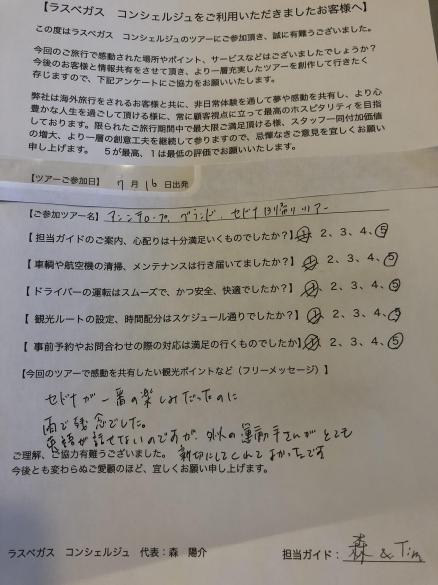 【ラスベガス　コンシェルジュをご利用いただきましたお客様へ】
この度はラスベガス　コンシェルジュのツアーにご参加頂き、誠に有難うございました。
今回のご旅行で感動された場所やポイント、サービスなどはございましたでしょうか？
今後のお客様と情報共有をさせて頂き、より一層充実したツアーを創作して行きたく
存じますので、下記アンケートにご協力をお願いいたします。
弊社は海外旅行をされるお客様と共に、非日常体験を通して夢や感動を共有し、より心
豊かな人生を過ごして頂ける様に、常に顧客視点に立って最高のホスピタリティを目指
しております。限られたご旅行期間中で最大限ご満足頂ける様、スタッフ一同付加価値
の増大、より一層の創意工夫を継続して参りますので、忌憚なきご意見を宜しくお願い
申し上げます。　５が最高、１は最低の評価でお願いいたします。
【ツアーご参加日】　7月16日出発
【ご参加ツアー名】アンテロープ、グランド、セドナ日帰りツアー
【 担当ガイドのご案内、心配りは十分満足いくものでしたか？】1、2、3、4、5
【 車輌や航空機の清掃、メンテナンスは行き届いてましたか？】1、2、3、4、5
【 ドライバーの運転はスムーズで、かつ安全、快適でしたか？】1、2、3、4、5
【 観光ルートの設定、時間配分はスケジュール通りでしたか？】1、2、3、4、5
【 事前予約やお問合わせの際の対応は満足の行くものでしたか】1、2、3、4、5
【今回のツアーで感動を共有したい観光ポイントなど（フリーメッセージ）】
セドナが一番の楽しみだったのに
雨で残念でした。
英語が話せないのですが、外人の運転手さんがとても
ご理解、ご協力有難うございました。　親切にしてくれてよかったです
今後とも変わらぬご愛顧のほど、宜しくお願い申し上げます。
ラスベガス　コンシェルジュ　代表：森　陽介
担当ガイド：　森 & Tim